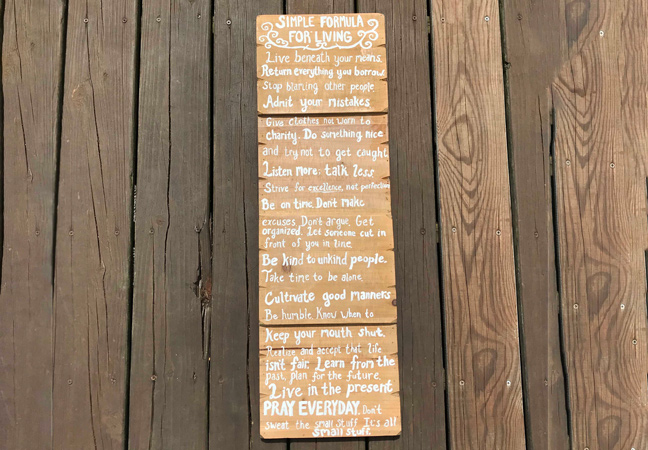 SIMPLE FORMULA
FOR LIVING
Live beneath your means.
Return everything you borrow
Stop blaming other people
Admit your mistakes
Give clothes not worn to
charity. Do something nice
and try not to get caught
Listen more; talk less
Strive for excellence, not perfection
Be on time. Don't make
excuses. Don't argue. Get
organized. Let someone cut in
front of you in line.
Be kind to unkind people.
Take time to be alone.
Cultivate good manners
Be humble. Know when to
Keep your mouth shut.
Realize and accept that life
isn't fair. Learn from the
past, plan for the future
Live in the present
PRAY EVERYDAY. Don't
sweat the small stuff It's all
Small Stuff.